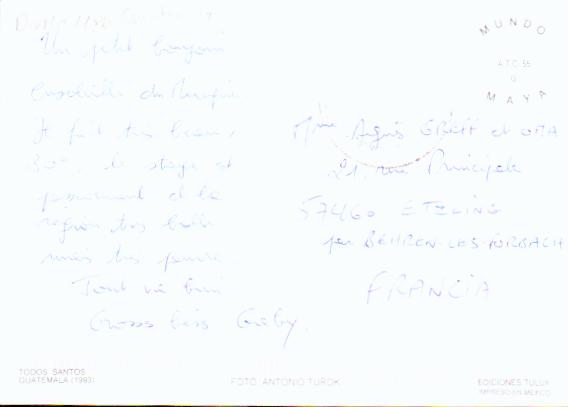 Un petit bonjour
ensoleillé du Mexique
Il fait très beau,
30°, le stage est
passionnant et la
région très belle
mais très pauvre
Tout va bien
Gross biss Gaby.
MUNDO
A.T.C. 55
MAYA
Mme Agnès et OMA
21, rue Principale
57460 ETZLING
par BEHREN-LES-FORBACH
FRANCIA
TODOS SANTOS
GUATEMALA (1993)
FOTO: ANTONIO TUROK
EDICIONES TULUK
IMPRESO EN MEXICO